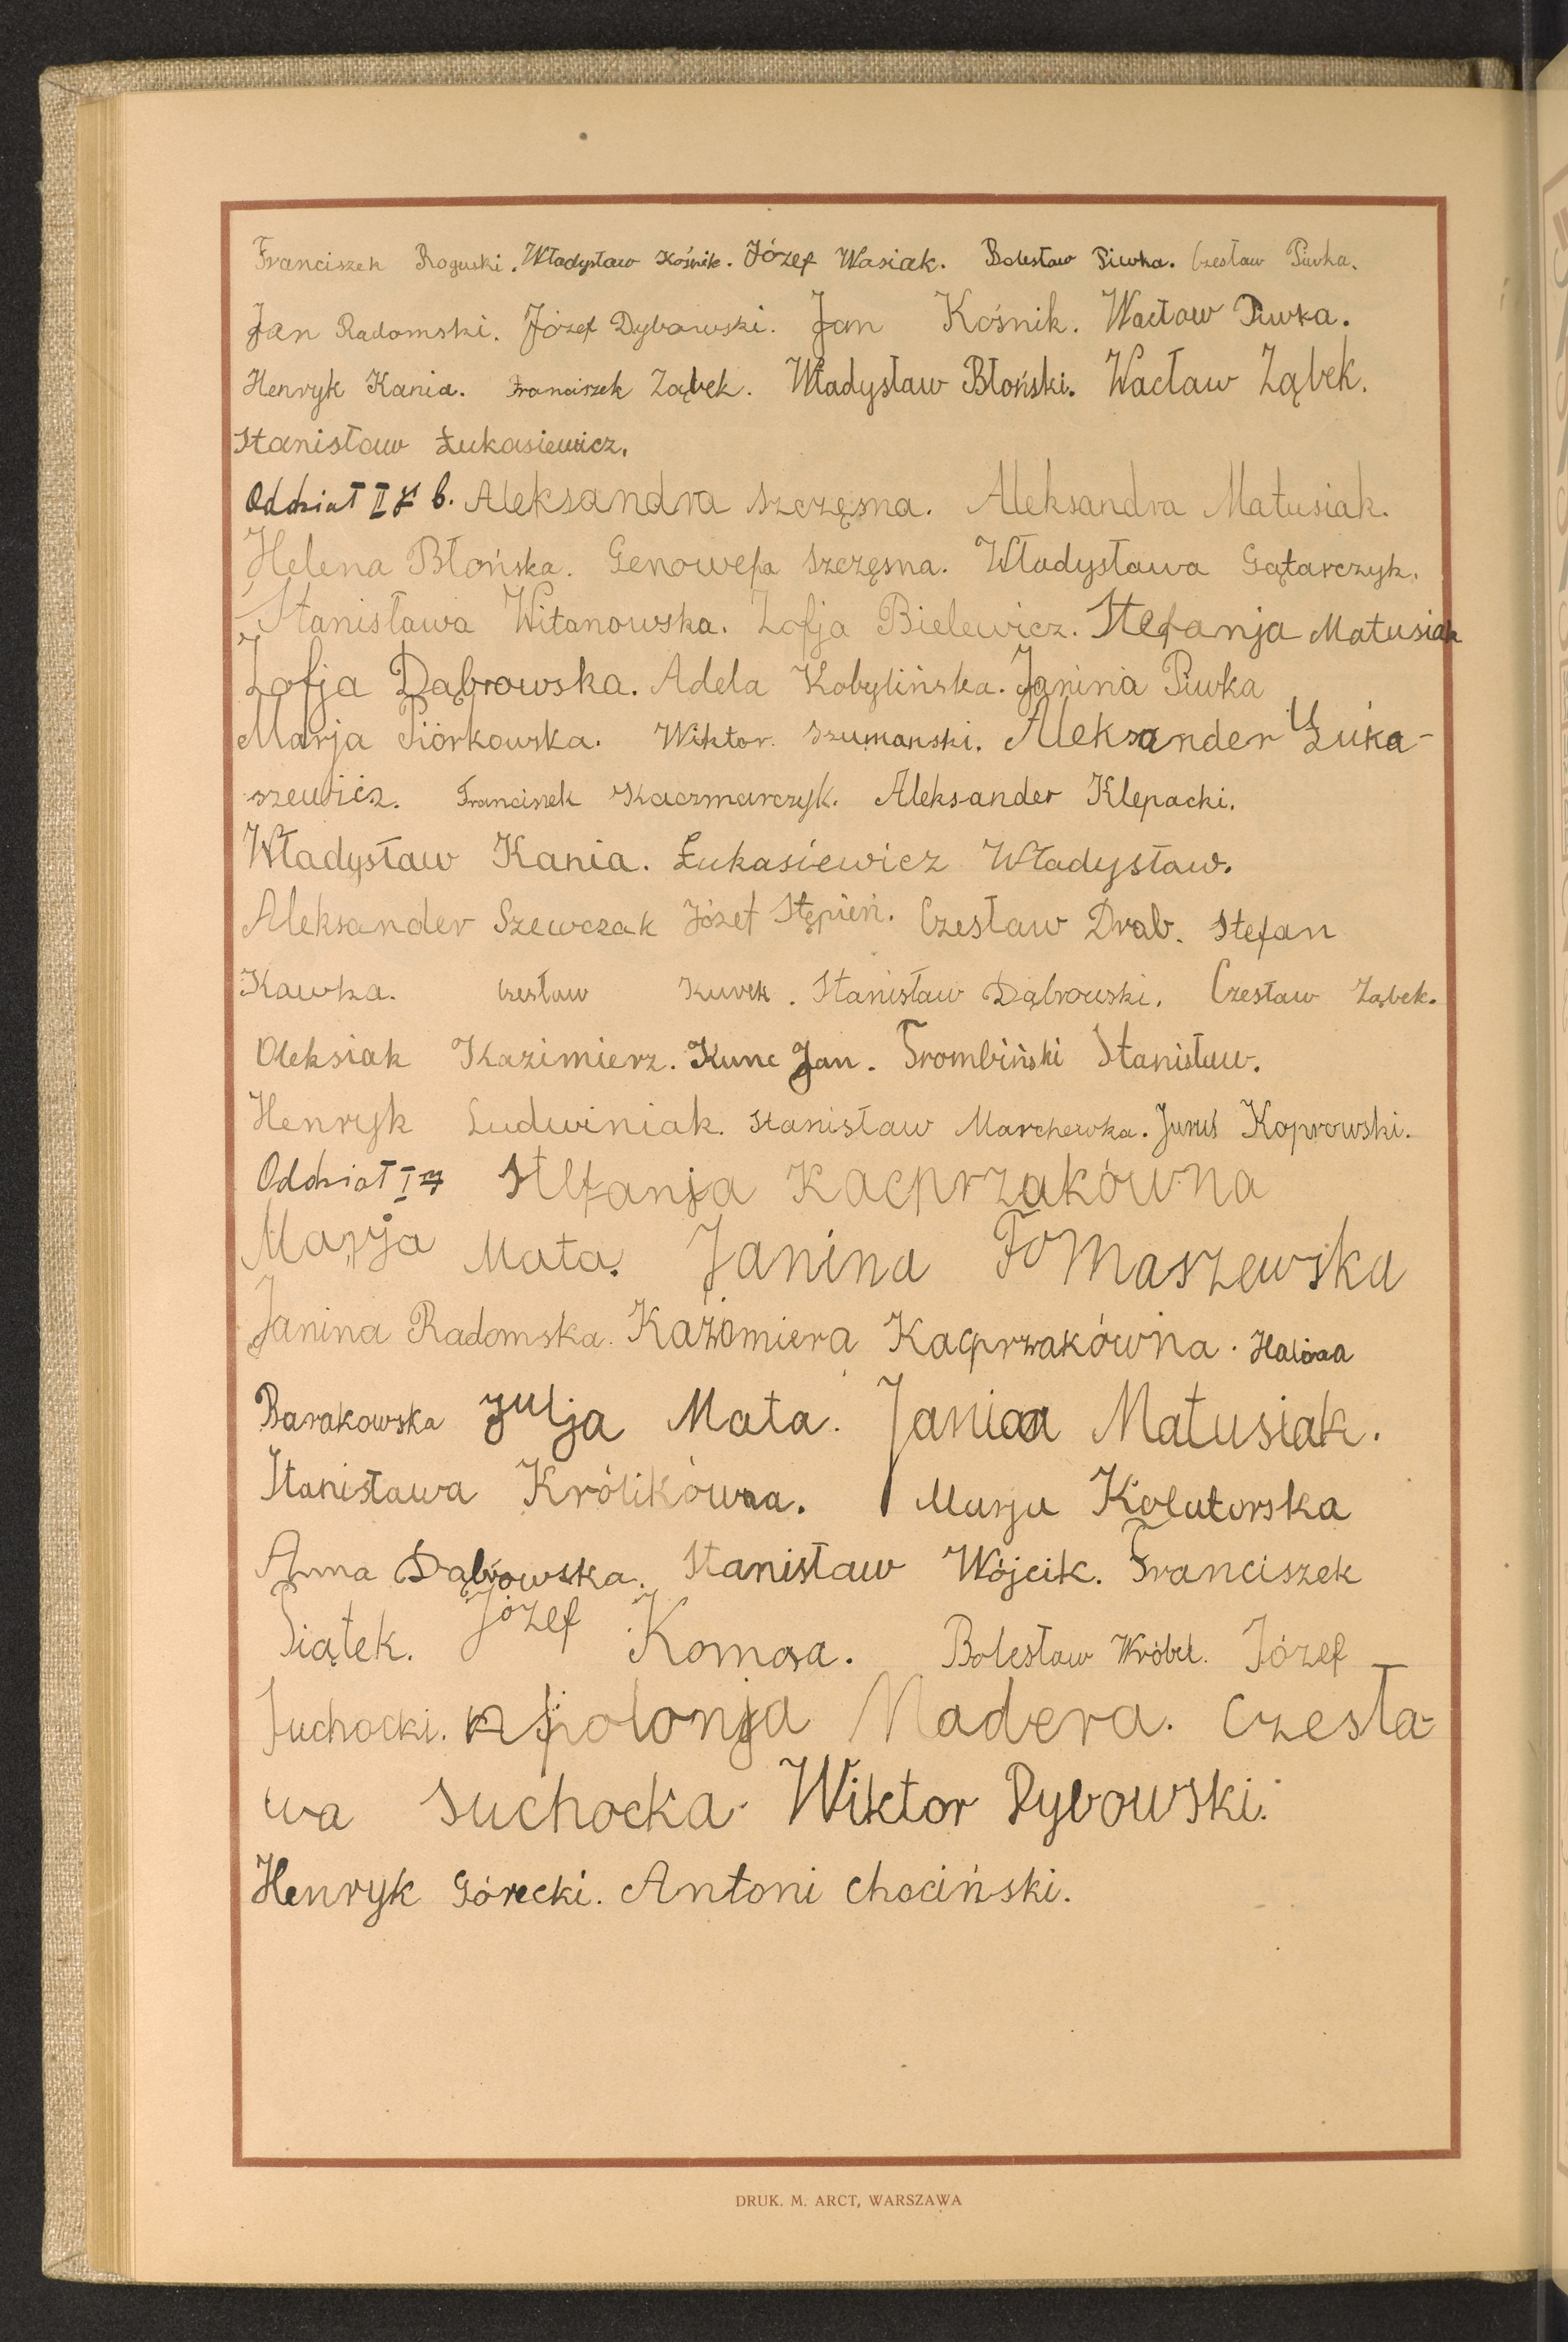 Franciszek Roguski. Władysław Kośnik. Józef Wasiak. Bolesław Piwka. Czesław Piwka.
Jan Radomski. Józef Dybowski. Jan Kośnik. Wacław Piwka.
Henryk Kania. Franciszek Ząbek. Władysław Błoński. Wacław Ząbek.
Stanisław Łukasiewicz.
Oddział b. Aleksandra Szczęsna. Aleksandra Matusiak.
Helena Błońska. Genowefa Szczęsna. Władysława Gątarczyk.
Stanisława Witanowska. Zofja Bielewicz. Stefanja Matusiak
Zofja Dąbrowska. Adela Kobylińska. Janina Piwka
Marja Piórkowska. Wiktor Szumanski. Aleksander Łuka-
szewicz. Franciszek Kaczmarczyk. Aleksander Klepacki.
Władysław Kania. Łukasiewicz Władysław.
Aleksander Szewczak Józef Stępień. Czesław Drab. Stefan
Kawka. Czesław Kurek. Stanisław Dąbrowski. Czesław Ząbek.
Oleksiak Kazimierz. Kunc Jan. Trombiński Stanisław.
Henryk Ludwiniak. Stanisław Marchewka. Juruś Koprowski.
Oddział Stefanja Kacprzakówna
Marja Mata. Janina Tomaszewska
Janina Radomska. Kazimiera Kacprzakówna. Halina
Barakowska Julja Mata. Janina Matusiak.
Stanisława Królikówna. Marja Kolutorska
Anna Dąbrowska. Stanisław Wójcik. Franciszek
Piątek. Józef Komosa. Bolesław Wróbel. Józef
Suchocki. Apolonja Madera. Czesła-
wa Suchocka. Wiktor Dybowski.
Henryk Górecki. Antoni Chociński.
DRUK. M. ARCT, WARSZAWA